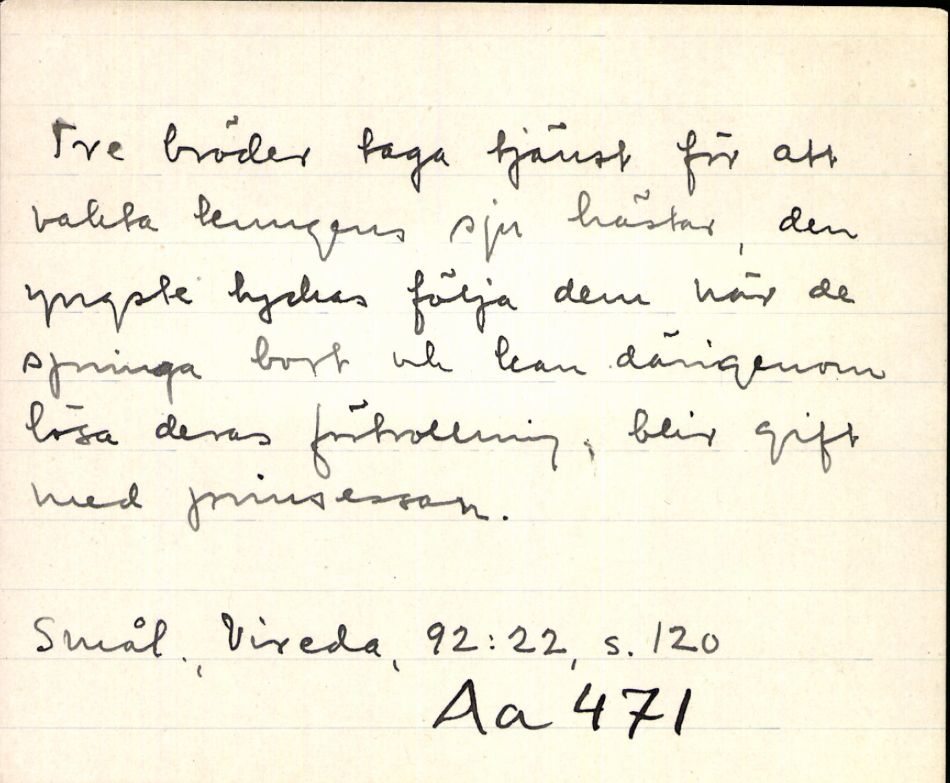 Tre bröder taga tjänst för att
vakta kungens sju hästar, den
yngste lyckas följa dem när de
springa bort och kan därigenom
lösa deras förtrollning, blir gift
med prinsessan.
Smål., Vireda, 92:22, s. 120
Aa 471